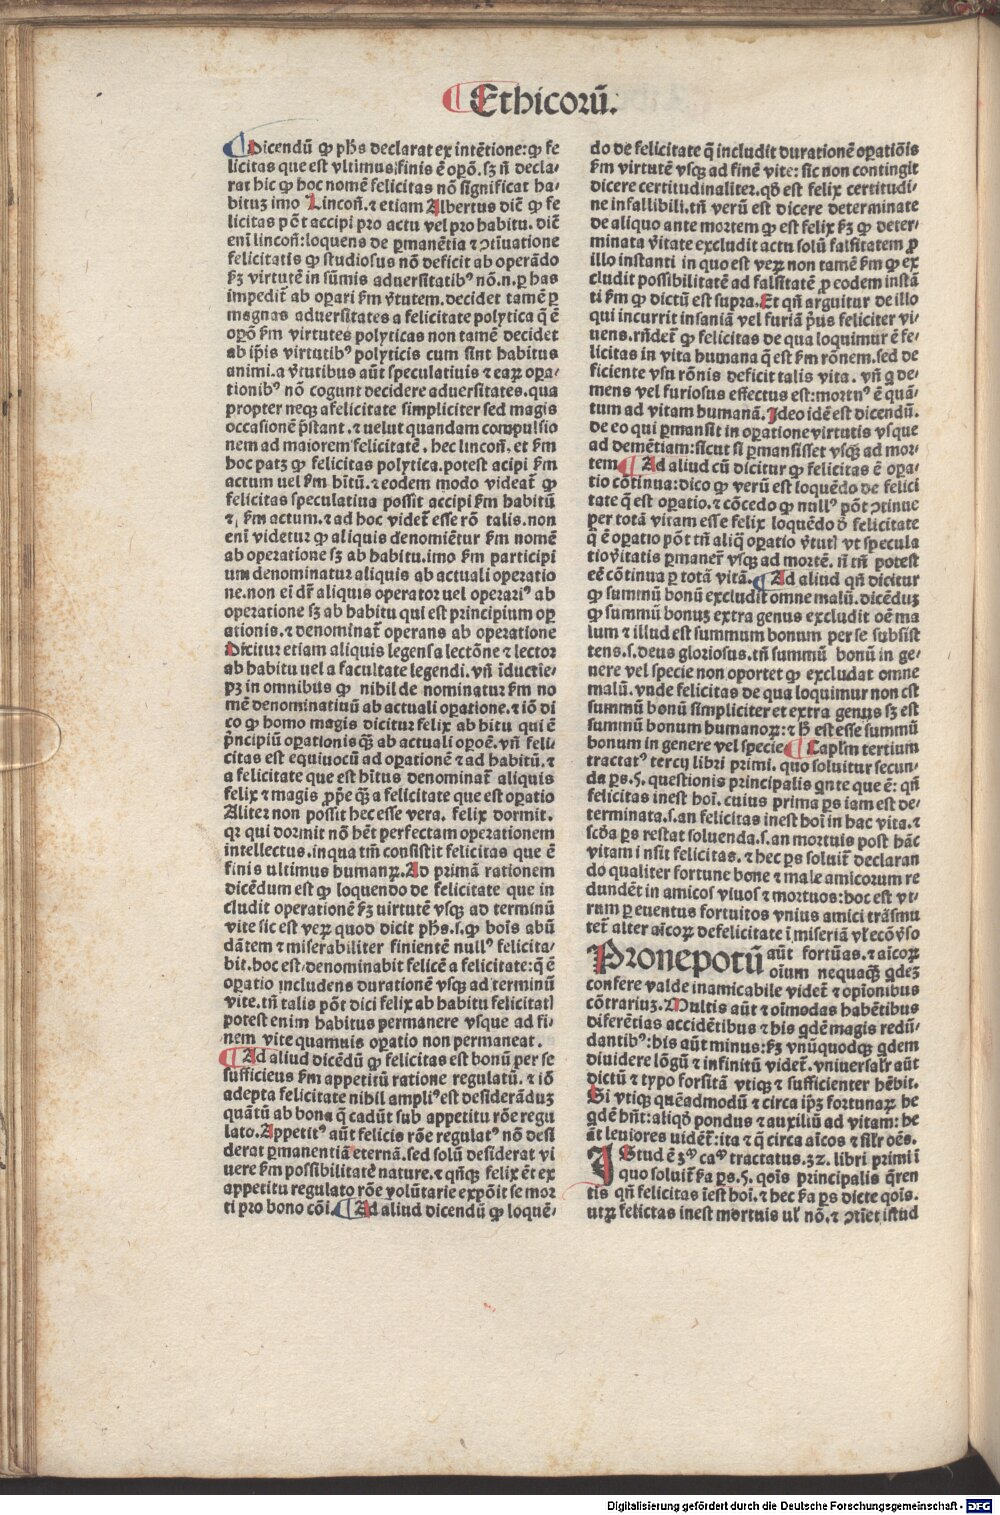 Ethicorū.
Dicendū ꝙ ph̄s declarat ex intētione: ꝙ fe
licitas que est vltimus finis ē oꝑō. sꝫ n̄ decla⸗
rat hic ꝙ hoc nomē felicitas nō significat ha⸗
bituꝫ imo Lincoñ. ⁊ etiam Albertus dic̄ ꝙ fe
licitas pōt accipi pro actu vel pro habitu. dic̄
eni lincoñ: loquens de ꝑmanētia ⁊ ↄtīuatione
felicitatis ꝙ studiosus nō deficit ab operādo
ẜm virtutē in sūmis aduersitatibꝰ nō. n. ꝑ has
impedit̄ ab oꝑari ẜm v̄tutem. decidet tamē ꝑ
magnas aduersitates a felicitate polytica q̄ ē
oꝑō ẜm virtutes polyticas non tamē decidet
ab ip̄is virtutibꝰ polyticis cum sint habitus
animi. a v̄tutibus aūt speculatiuis ⁊ eaꝝ oꝑa⸗
tionibꝰ nō cogunt decidere aduersitates. qua
propter neqꝫ a felicitate simpliciter sed magis
occasionē p̄stant. ⁊ uelut quandam compulsio
nem ad maiorem felicitatē. hec lincoñ. et ẜm
hoc patꝫ ꝙ felicitas polytica. potest acipi ẜm
actum uel ẜm h̄itū. ⁊ eodem modo videat̄ ꝙ
felicitas speculatiua possit accipi ẜm habitū
⁊ ẜm actum. ⁊ ad hoc videt̄ esse rō talis. non
eni videtur ꝙ aliquis denomiētur ẜm nomē
ab operatione sꝫ ab habitu. imo ẜm participi
um denominatur aliquis ab actuali operatio
ne. non ei dr̄ aliquis operator uel operariꝰ ab
operatione sꝫ ab habitu qui est principium oꝑ
ationis. ⁊ denominat̄ operans ab operatione
Dicitur etiam aliquis legens a lectōne ⁊ lector
ab habitu uel a facultate legendi. vn̄ īductie⸗
pꝫ in omnibus ꝙ nihil de nominatur ẜm no
mē denominatiuū ab actuali oꝑatione. ⁊ iō di
co ꝙ homo magis dicitur felix ab hitu qui ē
p̄ncipiū oꝑationis qꝫ̄ ab actuali oꝑoē. vn̄ feli⸗
citas est equiuocū ad oꝑationē ⁊ ad habitū. ⁊
a felicitate que est h̄itus denominat̄ aliquis
felix ⁊ magis ꝓp̄e qꝫ̄ a felicitate que est oꝑatio
Aliter non possit hec esse vera. felix dormit.
qꝛ qui dormit nō hēt perfectam operationem
intellectus. in qua tm̄ consistit felicitas que ē
finis ultimus humanꝝ. Ad primā rationem
dicēdum est ꝙ loquendo de felicitate que in
cludit operationē ẜm uirtutē vsqꝫ ad terminū
vite sic est veꝝ quod dicit ph̄s. s. ꝙ hoīs abū
dātem ⁊ miserabiliter finientē nullꝰ felicita⸗
bit. hoc est denominabit felicē a felicitate: q̄ ē
oꝑatio includens durationē vsqꝫ ad terminū
vite. tn̄ talis pōt dici felix ab habitu felicitatꝭ
potest enim habitus permanere vsque ad fi⸗
nem vite quamuis oꝑatio non permaneat.
Ad aliud dicēdū ꝙ felicitas est bonū per se
sufficiens ẜm appetitū ratione regulatū. ⁊ iō
adepta felicitate nihil ampliꝰ est desiderāduꝫ
quātū ab bona q̄ cadūt sub appetitu rōe regu
lato. Appetitꝰ aūt felicis rōe regulatꝰ nō desi
derat ꝑmanentiā eternā. sed solū desiderat vi
uere ẜm possibilitatē nature. ⁊ qn̄qꝫ felix ēt ex
appetitu regulato rōe volūtarie expōit se mor
ti pro bono cōi. Ad aliud dicendū ꝙ loquē⸗
do de felicitate q̄ includit durationē oꝑatiōis
ẜm virtutē vsqꝫ ad finē vite: sic non contingit
dicere certitudinaliter. qđ est felix certitudi⸗
ne infallibili. tn̄ verū est dicere determinate
de aliquo ante mortem ꝙ est felix ẜꝫ ꝙ deter⸗
minata v̄itate excludit actu solū falsitatem ꝓ
illo instanti in quo est veꝝ non tamē ẜm ꝙ ex
cludit possibilitatē ad falsitatē ꝓ eodem instā
ti ẜm ꝙ dictū est supra. Et qn̄ arguitur de illo
qui incurrit insaniā vel furiā p̄us feliciter vi⸗
uens. rn̄det̄ ꝙ felicitas de qua loquimur ē fe⸗
licitas in vita humana q̄ est ẜm rōnem. sed de
ficiente vsu rōnis deficit talis vita. vn̄ q̄ de⸗
mens vel furiosus effectus est: mortuꝰ ē quā⸗
tum ad vitam humanā. Ideo idē est dicendū.
de eo qui ꝑmansit in oꝑatione virtutis vsque
ad demētiam: sicut si ꝑmansisset vsqꝫ ad mor⸗
tem. Ad aliud cū dicitur ꝙ felicitas ē oꝑa⸗
tio cōtinua: dico ꝙ verū est loquēdo de felici
tate q̄ est oꝑatio. ⁊ cōcedo ꝙ nullꝰ pōt ↄtinue
per totā vitam esse felix loquēdo d̄ felicitate
q̄ ē oꝑatio pōt tn̄ aliq̄ oꝑatio v̄tutꝭ vt specula
tio v̄itatis ꝑmaner̄ vsqꝫ ad mortē. n̄ tn̄ potest
eē cōtinua ꝑ totā vitā. Ad aliud qn̄ dicitur
ꝙ summū bonū excludit omne malū. dicēduꝫ
ꝙ summū bonuꝫ extra genus excludit oē ma
lum ⁊ illud est summum bonum per se subsist
tens. s. deus gloriosus. tn̄ summū bonū in ge⸗
nere vel specie non oportet ꝙ excludat omne
malū. vnde felicitas de qua loquimur non est
summū bonū simpliciter et extra genus sꝫ est
summū bonum humanoꝝ: ⁊ h̄ est esse summū
bonum in genere vel specie. Capl̄m tertium
tractatꝰ tercij libri primi. quo soluitur secun⸗
da ꝑs. 5. questionis principalis qn̄te que ē: qn̄
felicitas inest hoī. cuius prima ꝑs iam est de⸗
terminata. s. an felicitas inest hoī in hac vita. ⁊
scd̄a ꝑs restat soluenda. s. an mortuis post hāc
vitam insit felicitas. ⁊ hec ꝑs soluit̄ declaran
do qualiter fortune bone ⁊ male amicorum re
dundēt in amicos viuos ⁊ mortuos: hoc est vt⸗
rum ꝑ euentus fortuitos vnius amici trāsmu
tet̄ alter aīcoꝝ de felicitate ī miseriā vl̄ ecōv̄so
Pronepotū aūt fortūas. ⁊ aīcoꝝ
oīum nequaqꝫ̄ qdeꝫ
confere valde inamicabile videt̄ ⁊ opīonibus
cōtrariuꝫ. Multis aūt ⁊ oīmodas habētibus
diferētias accidētibus ⁊ his qdē magis redū⸗
dantibꝰ: his aūt minus: ẜꝫ vnūquodqꝫ qdem
diuidere lōgū ⁊ infinitū videt̄. vniuersalr̄ aūt
dictū ⁊ typo forsitā vtiqꝫ ⁊ sufficienter hēbit.
Si vtiqꝫ quēadmodū ⁊ circa ip̄ꝫ fortunaꝝ he
qdē hn̄t: aliqđ pondus ⁊ auxiliū ad vitam: he
āt leuiores uidēt̄: ita ⁊ q̄ circa aīcos ⁊ silr̄ oēs.
IStud ē 3ᵐ caᵐ tractatus. 3ꝛ. libri primi ī
quo soluit̄ ẜa ꝑs. 5. qōis principalis q̄ren
tis qn̄ felicitas īest hoī. ⁊ hec ẜa ꝑs dicte qōis.
utꝝ felicitas inest mortuis ul̄ nō. ⁊ ↄtīet istud
Digitalisierung gefördert durch die Deutsche Forschungsgemeinschaft - DFG